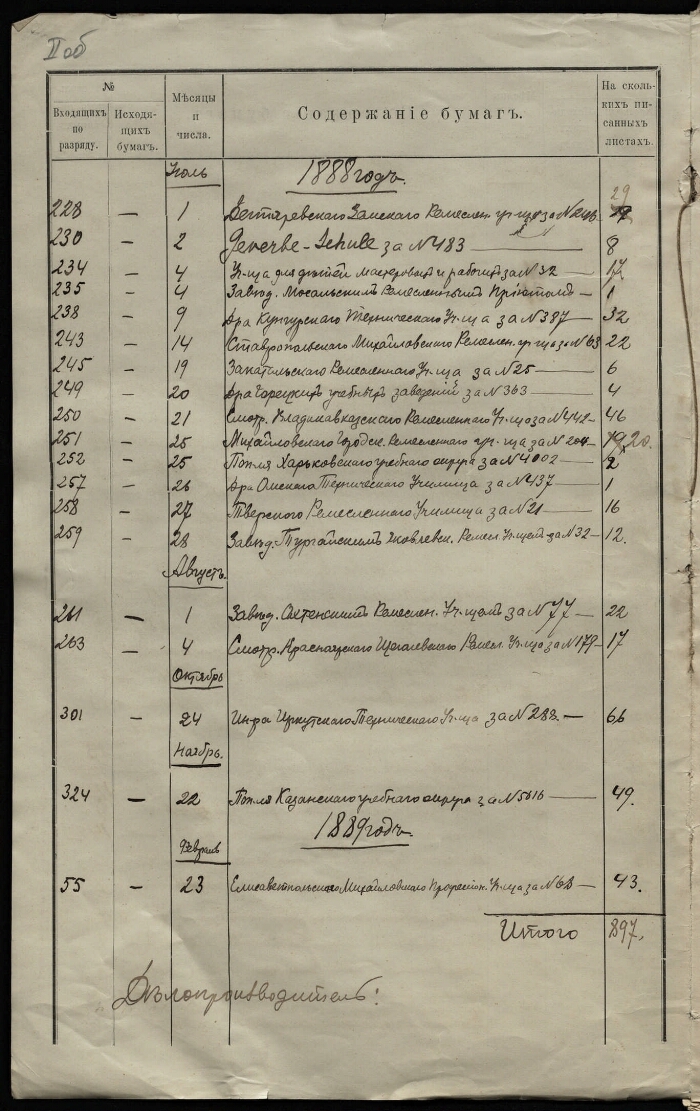 II об
№
Входящихъ по разряду.
Исходя-щихъ бумагъ.
Мѣсяцы и числа.
Содержаніе бумагъ.
На сколь-кихъ пи-санныхъ листахъ.
Іюль 1888 годъ.
29
228 — 1 Дегтяревскаго Земскаго Ремеслен. уч-ща за №
230 — 2 Gewerbe-Schule за №483 — 8
234 — 4 Уч-ща для дѣтей мастеровыхъ и рабочихъ за №32 — 17
235 — 4 Завѣд. Мосальскимъ Ремесленнымъ Пріютомъ — 1
238 — 9 Д-ра Кунгурскаго Техническаго Уч-ща за №387 — 32
243 — 14 Ставропольскаго Михайловскаго Ремеслен. уч-ща за №63 22
245 — 19 Ремесленнаго Уч-ща за №25 — 6
249 — 20 Д-ра Горецкихъ учебныхъ заведеній за №363 — 4
250 — 21 Смотр. Владикавказскаго Ремесленнаго Уч-ща за №442 — 46
251 — 25 Михайловскаго Городск. Ремесленнаго уч-ща за №204 — 20.
252 — 25 Поп-ля Харьковскаго учебнаго округа за №4002 — 2
257 — 26 Д-ра Омскаго Техническаго Училища за №437 — 1
258 — 27 Тверского Ремесленнаго Училища за №21 — 16
259 — 28 Завѣд. Тургайскимъ Яковлевск. Ремесл. Уч-щемъ за №32 — 12.
Августъ.
261 — 1 Завѣд. Охтенскимъ Ремеслен. Уч-щемъ за №77 — 22
263 — 4 Смотр. Красноярскаго Щеголевскаго Ремесл. Уч-ща за №179 — 17
Октябрь
301 — 24 Ин-ра Иркутскаго Техническаго Уч-ща за №288. — 66
Ноябрь.
324 — 22 Поп-ля Казанскаго учебнаго округа за №5616 — 49.
1889 годъ.
Февраль
55 — 23 Елисаветпольскаго Михайловскаго Професіон. Уч-ща за №63 — 43.
Итого 897.
Дѣлопроизводитель: